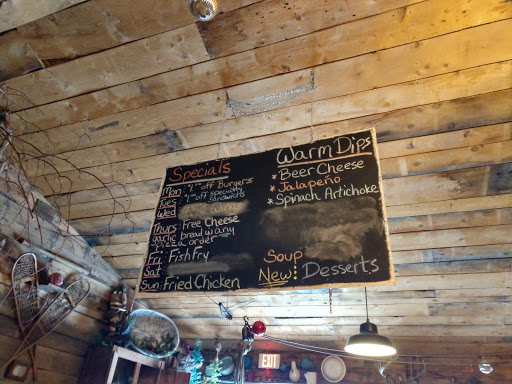 Specials
Mon: $1.00 off Burgers
Tues: $1.00 off specialty
Sandwich
Wed
Thurs: Free Cheese
garlic bread w/any
Pizza order
Fri: Fish Fry
Sat:
Sun: Fried Chicken
Warm Dips
* Beer Cheese
* Jalapeño
* Spinach Artichoke
Soup
New: Desserts
EXIT